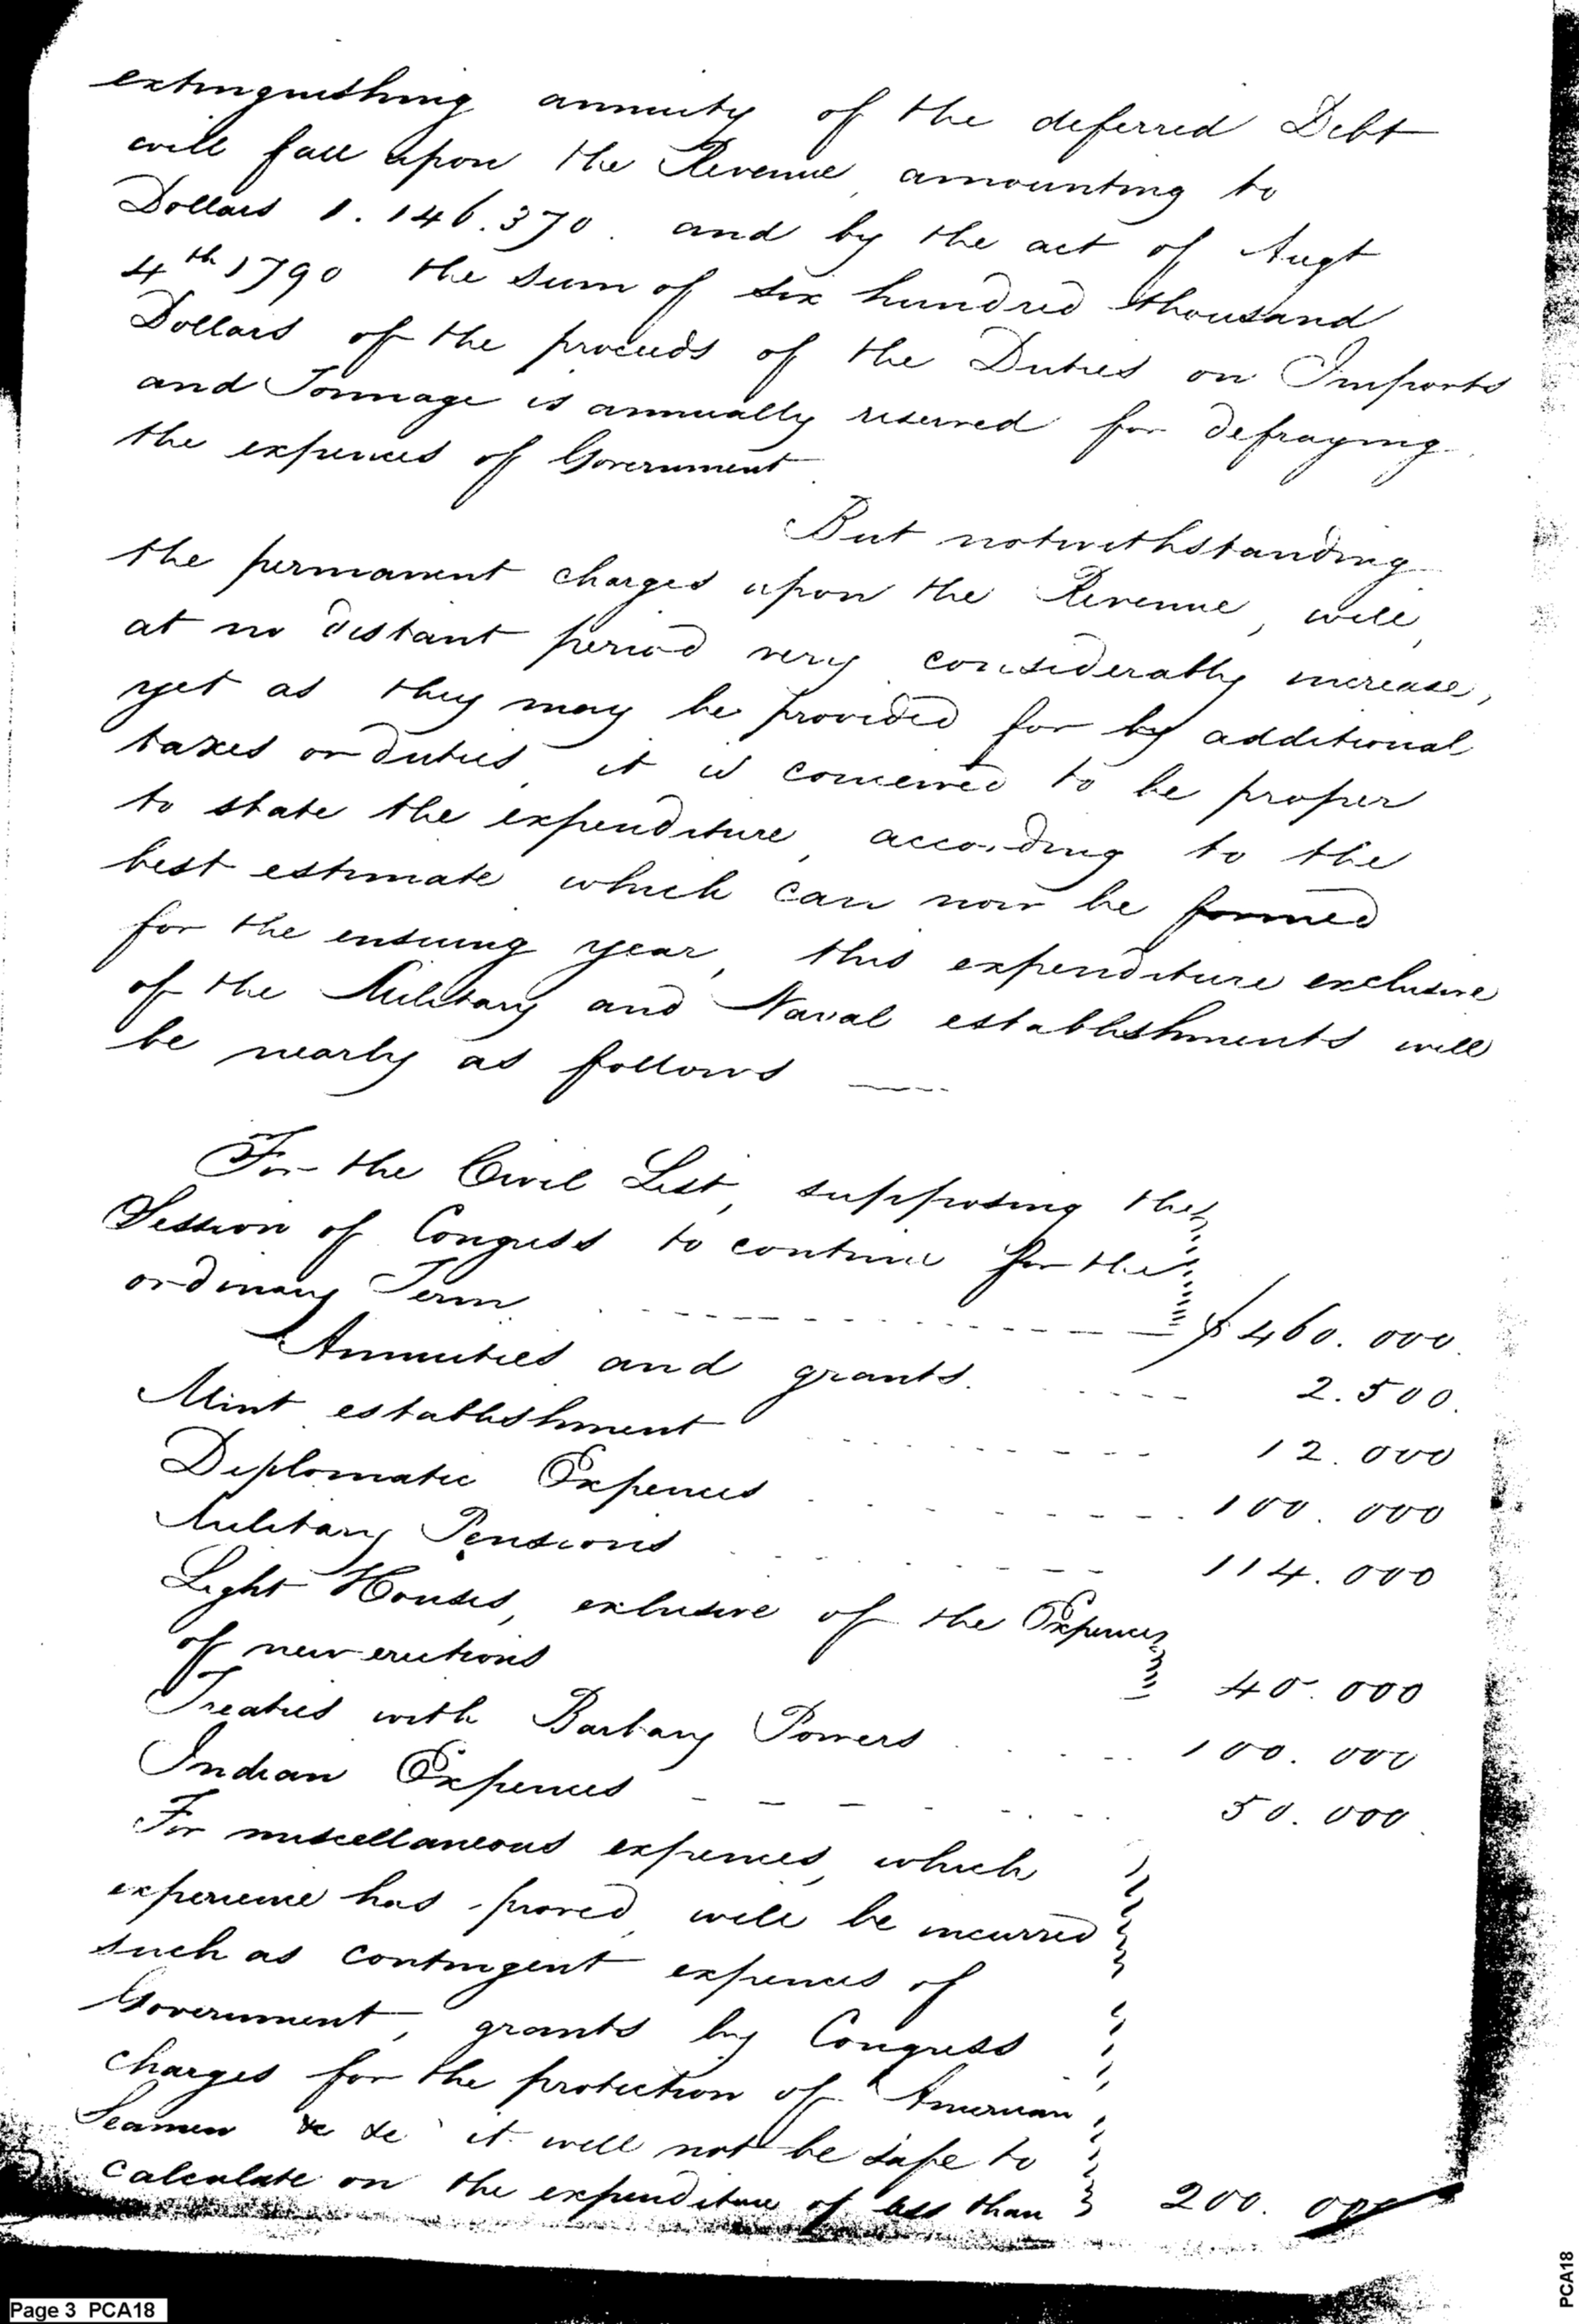 extinguishing annuity of the deferred Debt
will fall upon the Revenue, amounting to
Dollars 1.146.370. and by the act of Augt
4th 1790 the sum of six hundred thousand
Dollars of the proceeds of the Duties on Imports
and Tonnage is annually reserved for defraying
the expences of Government.
But notwithstanding
the permanent charges upon the Revenue, will,
at no distant period very considerably increase,
yet as they may be provided for by additional
taxes or duties, it is conceived to be proper
to state the expenditure, according to the
best estimate which can now be formed
for the ensuing year, this expenditure exclusive
of the Military and Naval establishments will
be nearly as follows ——
For the Civil List, supposing the
Session of Congress to continue for the
ordinary Term . . - - - - - - $ 460.000.
Annuities and grants. . - - - 2.500.
Mint establishment . - - - - - 12.000
Diplomatic Expences . . - - - - 100.000
Military Pensions . . - - - 114.000
Light Houses, exlusive of the Expences
of new erections 40.000
Treaties with Barbary Powers . . . - - 100.000
Indian Expences - - - - . - . 50.000.
For miscellaneous expences, which
experience has proved, will be incurred
such as contingent expences of
Government, grants by Congress
charges for the protection of American
Seamen &c &c it will not be safe to
calculate on the expenditure of less than 200.000
Page 3 PCA18
PCA18